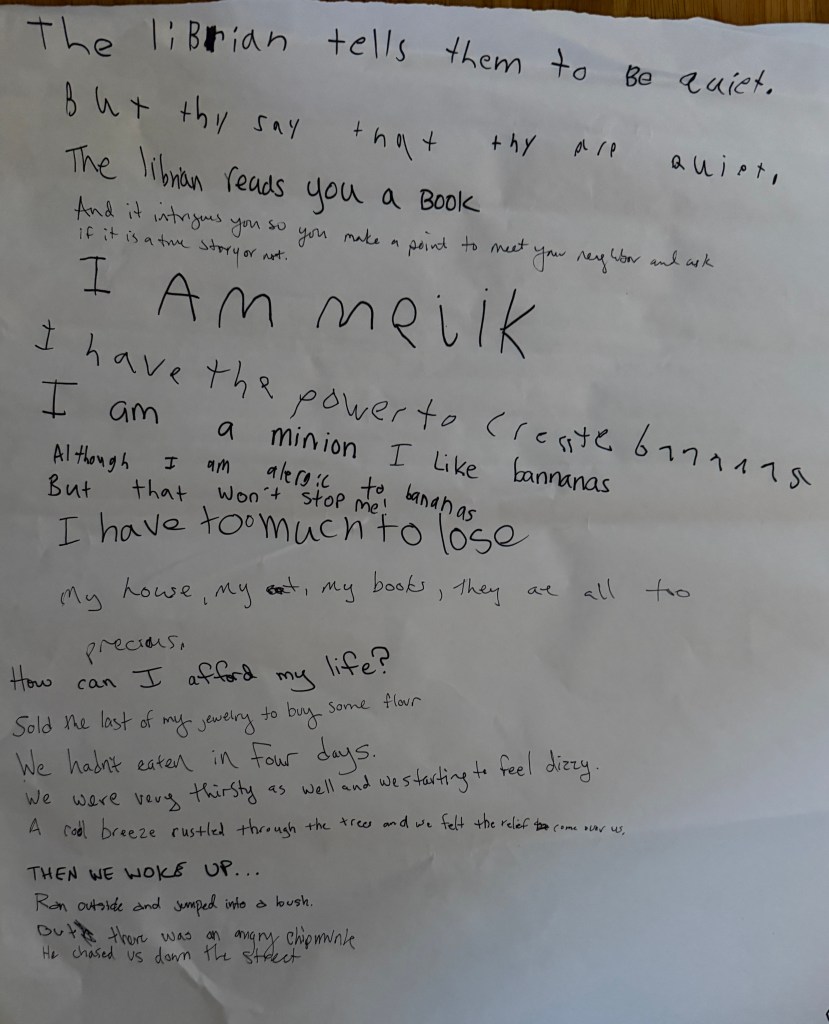 The liBrian tells them to Be quiet.
But thy say that thy are quiet.
The librian reads you a BOOK
And it intrigues you so you make a point to meet your neighbor and ask
if it is a true story or not.
I AM meiik
I have the power to create
I am a minion I like bannanas
Although I am alergic to bananas
But that won't stop me!
I have too much to lose
My house, my cat, my books, they are all too
precious.
How can I afford my life?
Sold the last of my jewelry to buy some flour
We hadn't eaten in four days.
We were very thirsty as well and we starting to feel dizzy.
A cool breeze rustled through the trees and we felt the relief come over us.
THEN WE WOKE UP...
Ran outside and jumped into a bush.
But there was an angry chipmunk
He chased us down the street